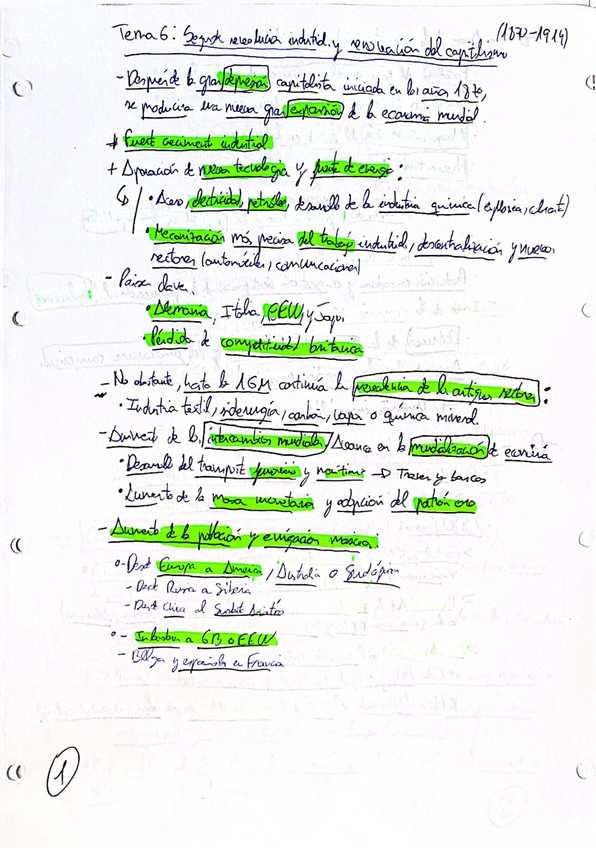 Tema 6: Segunda revolución industrial y renovación del capitalismo (1870-1914)
- Después de la gran depresión capitalista iniciada en los años 1870,
se producirá una nueva gran expansión de la economía mundial.
+ Fuerte crecimiento industrial
+ Aparición de nueva tecnología y fuente de energía:
• Acero, electricidad, petróleo, desarrollo de la industria química (explosivos, )
• Mecanización más precisa del trabajo industrial, descentralización y nuevos
sectores (automóviles, comunicaciones)
- Países clave.
• Alemania, Italia, EEUU y Japón
• Pérdida de competitividad británica
- No obstante, hasta la 1GM continúa la preponderancia de los antiguos sectores:
• Industria textil, siderurgia, carbón, vapor o química mineral.
- Aumento de los intercambios mundiales / Avance en la mundialización de economía
• Desarrollo del transporte ferroviario y marítimo → Trenes y barcos
• Aumento de la masa monetaria y adopción del patrón oro
- Aumento de la población y emigración masiva.
o- Desde Europa a América, Australia o Sudáfrica
- Desde Rusia a Siberia
- Desde China al Sudeste Asiático
o- Irlandeses a GB o EEUU
- Belgas y españoles en Francia
1